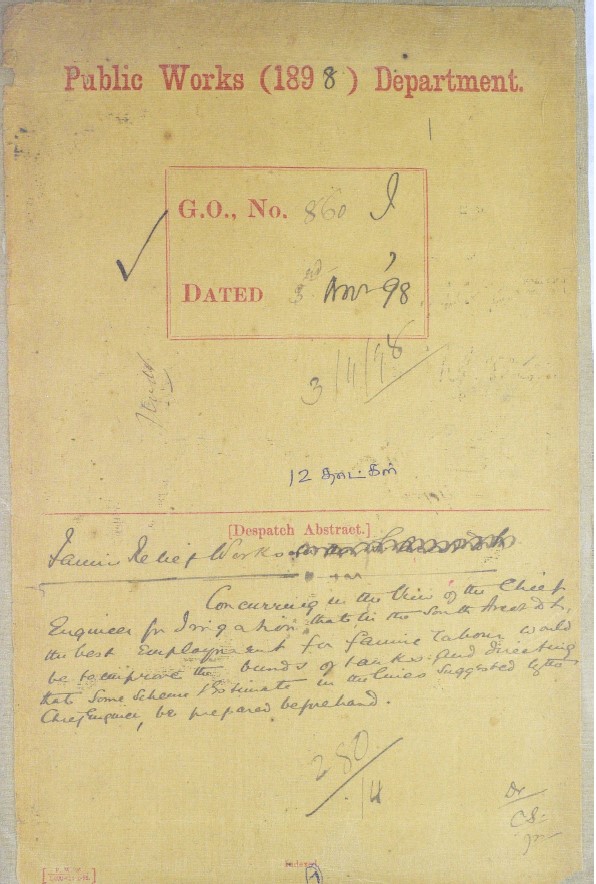 Public Works (1898) Department.
G.O., No. 860 I
DATED 3rd Nov '98.
3/11/98
12 தாட்கள்
[Despatch Abstract.]
Famine Relief Works
Concurring in the View of the Chief
Engineer for Irrigation that in the South Arcot Dt,
the best Employment for famine labour would
be to improve the bunds of tanks and directing
that some Scheme & Estimate in the lines suggested by the
Chief Engineer, be prepared beforehand.
280
14
Indexed